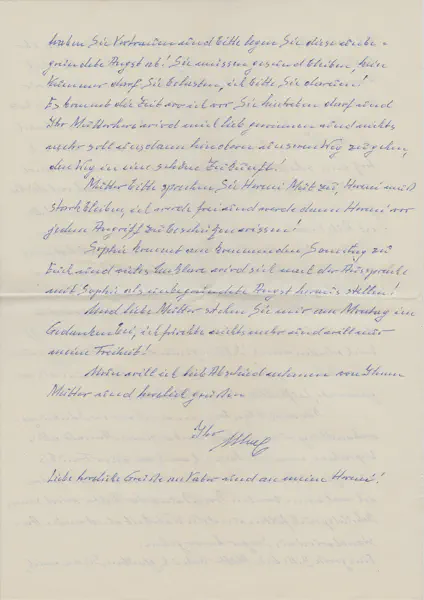 haben Sie Vertrauen und bitte legen Sie diese unbe-
gründete Angst ab! Sie müssen gesund bleiben, kein
Kummer darf Sie belasten, ich bitte Sie darum!
Es kommt die Zeit wo ich vor Sie hintreten darf und
Ihr Mutterherz wird mich lieb gewonnen und nichts
mehr soll uns dann hindern unseren Weg zu gehen,
den Weg in eine schöne Zukunft!
Mutter bitte sprechen Sie Hermi Mut zu, Hermi muß
stark bleiben, ich werde frei und werde dann Hermi vor
jedem Angriff zu beschützen wissen!
Sophie kommt am kommenden Samstag zu
Euch und wird sich nach der Aussprache
mit Sophie als unbegründete Angst heraus stellen!
Und liebe Mutter stehen Sie mir am Montag im
Gedanken bei, ich fürchte nichts mehr und will nur
meine Freiheit!
Nun will ich lieb Abschied nehmen von Ihnen
Mutter und herzlich grüßen
Ihr
Liebe herzliche Grüße an Vater und an meine Hermi!